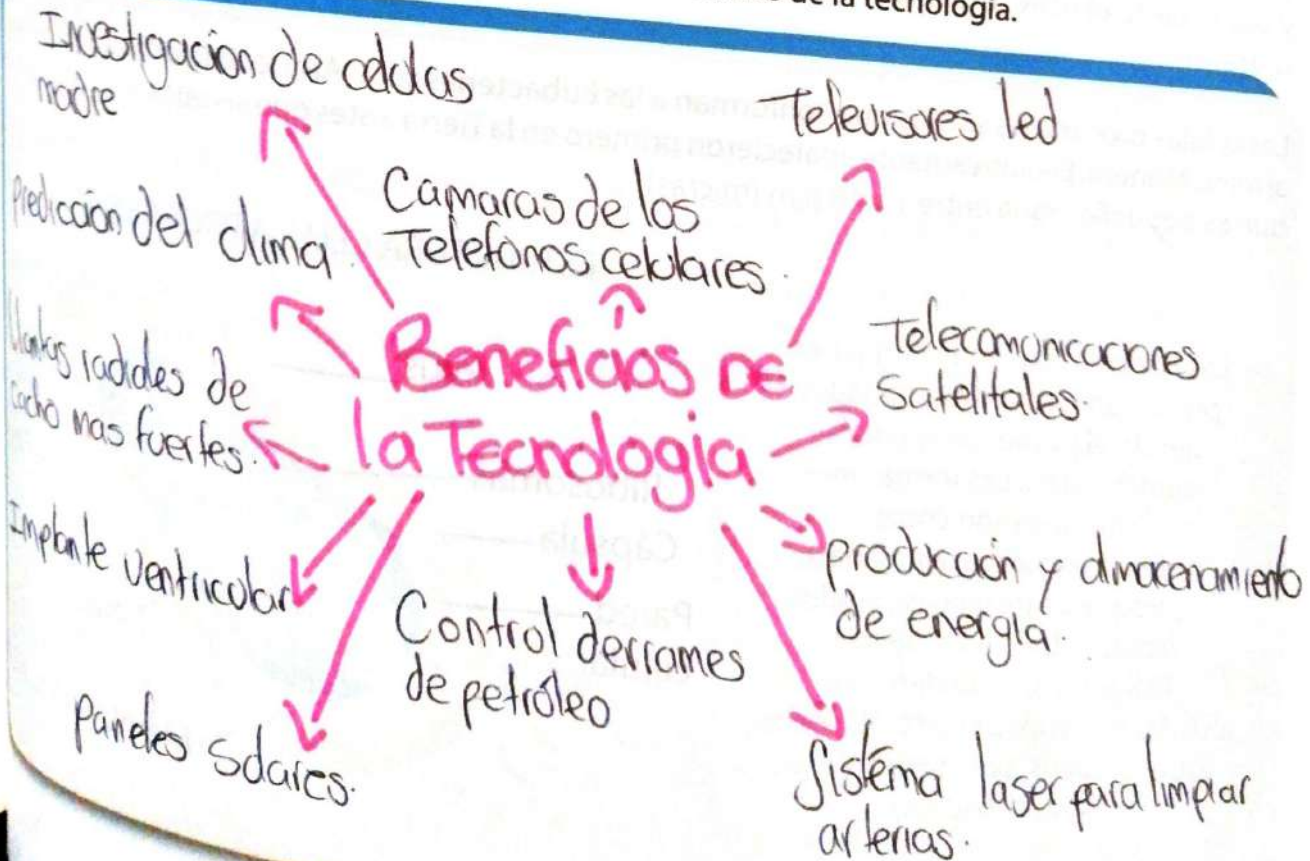 de la tecnología.
Investigación de celulas
madre
Televisores led
Camaras de los
Telefonos celulares.
Predicción del clima.
Beneficios DE
la Tecnologia
Telecomunicaciones
Satelitales.
Llantas radiales de
más fuertes.
Implante ventricular
Control derrames
de petróleo
producción y almacenamiento
de energía.
Paneles solares.
Sistema laser para limpiar
arterias.